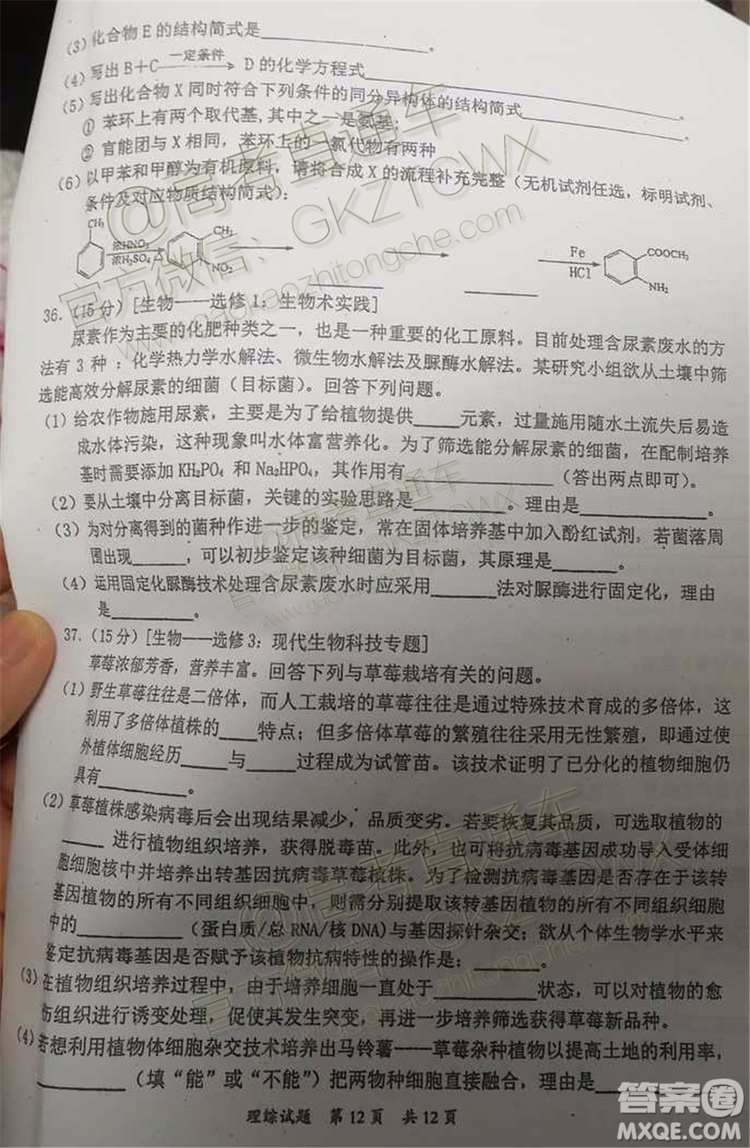 (3)化合物 E 的结构简式是____________。
(4)写出 B＋C 一定条件→ D 的化学方程式____________
(5)写出化合物 X 同时符合下列条件的同分异构体的结构简式____________。
① 苯环上有两个取代基,其中之一是氨基;
② 官能团与 X 相同，苯环上的一氯代物有两种
(6)以甲苯和甲醇为有机原料，请将合成 X 的流程补充完整（无机试剂任选，标明试剂、
条件及对应物质结构简式)：
CH₃ 浓HNO₃ 浓H₂SO₄ CH₃ NO₂ ____ ____ Fe HCl COOCH₃ NH₂
36.（15 分）[生物——选修 1：生物术实践]
尿素作为主要的化肥种类之一，也是一种重要的化工原料。目前处理含尿素废水的方
法有 3 种：化学热力学水解法、微生物水解法及脲酶水解法。某研究小组欲从土壤中筛
选能高效分解尿素的细菌（目标菌）。回答下列问题。
(1)给农作物施用尿素，主要是为了给植物提供____元素，过量施用随水土流失后易造
成水体污染，这种现象叫水体富营养化。为了筛选能分解尿素的细菌，在配制培养
基时需要添加 KH₂PO₄ 和 Na₂HPO₄，其作用有____________（答出两点即可）。
(2)要从土壤中分离目标菌，关键的实验思路是______。理由是______。
(3)为对分离得到的菌种作进一步的鉴定，常在固体培养基中加入酚红试剂，若菌落周
围出现____，可以初步鉴定该种细菌为目标菌，其原理是______。
(4)运用固定化脲酶技术处理含尿素废水时应采用______法对脲酶进行固定化，理由
是______。
37.（15 分）[生物——选修 3：现代生物科技专题]
草莓浓郁芳香，营养丰富。回答下列与草莓栽培有关的问题。
(1)野生草莓往往是二倍体，而人工栽培的草莓往往是通过特殊技术育成的多倍体，这
利用了多倍体植株的____特点；但多倍体草莓的繁殖往往采用无性繁殖，即通过使
外植体细胞经历____与____过程成为试管苗。该技术证明了已分化的植物细胞仍
具有______。
(2)草莓植株感染病毒后会出现结果减少，品质变劣。若要恢复其品质，可选取植物的
____进行植物组织培养，获得脱毒苗。此外，也可将抗病毒基因成功导入受体细
胞细胞核中并培养出转基因抗病毒草莓植株。为了检测抗病毒基因是否存在于该转
基因植物的所有不同组织细胞中，则需分别提取该转基因植物的所有不同组织细胞
中的________（蛋白质/总 RNA/核 DNA)与基因探针杂交；欲从个体生物学水平来
鉴定抗病毒基因是否赋予该植物抗病特性的操作是：______。
(3)在植物组织培养过程中，由于培养细胞一直处于________状态，可以对植物的愈
伤组织进行诱变处理，促使其发生突变，再进一步培养筛选获得草莓新品种。
(4)若想利用植物体细胞杂交技术培养出马铃薯——草莓杂种植物以提高土地的利用率，
________（填“能”或“不能”）把两物种细胞直接融合，理由是________。
理综试题 第12页 共12页
@高考直通车
官方微信：GKZTCWX
www.gaokaozhitongche.com
答案圈
MXQE.COM